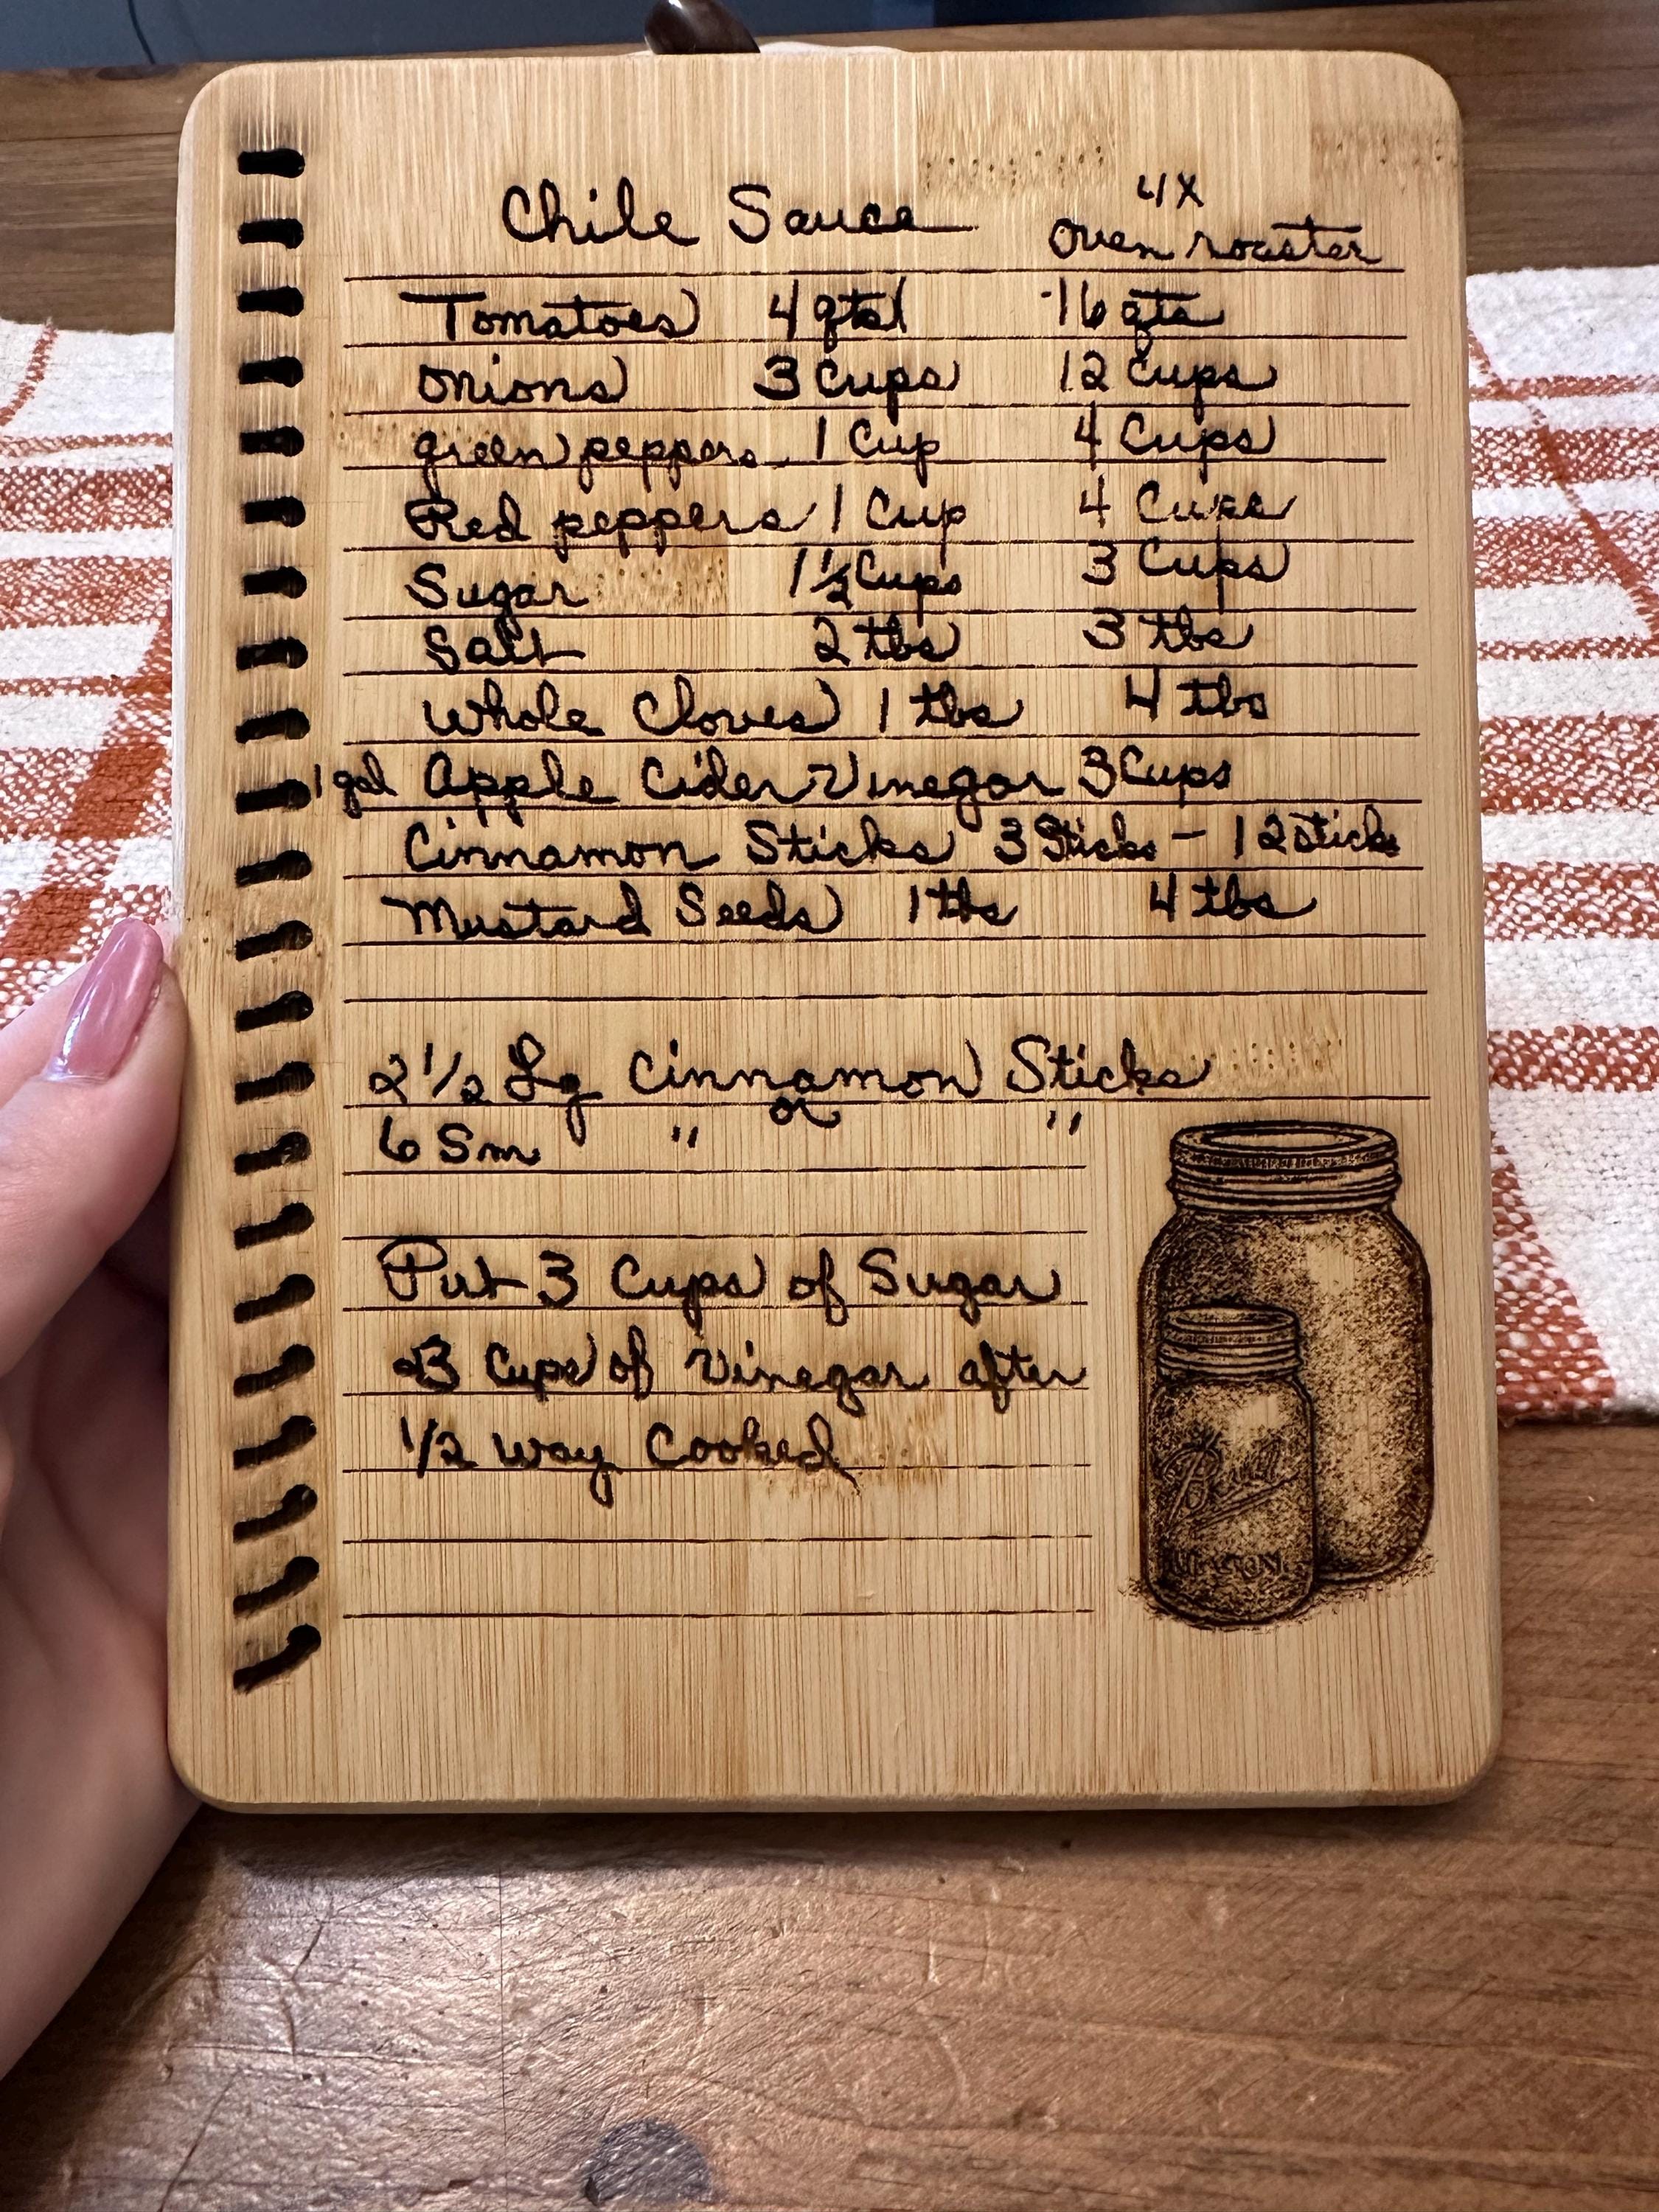 Chile Sauce
4X
Oven roaster
Tomatoes 4 qts 16 qts
Onions 3 Cups 12 Cups
green peppers 1 Cup 4 Cups
Red peppers 1 Cup 4 Cups
Sugar 1 1/2 Cups 3 Cups
Salt 2 tbs 3 tbs
Whole Cloves 1 tbs 4 tbs
1 gal Apple Cider Vinegar 3 Cups
Cinnamon Sticks 3 Sticks - 12 sticks
Mustard Seeds 1 tbs 4 tbs
2 1/2 Lg Cinnamon Sticks
or
6 Sm " "
Put 3 Cups of Sugar
3 Cups of Vinegar after
1/2 way Cooked
Ball
MASON